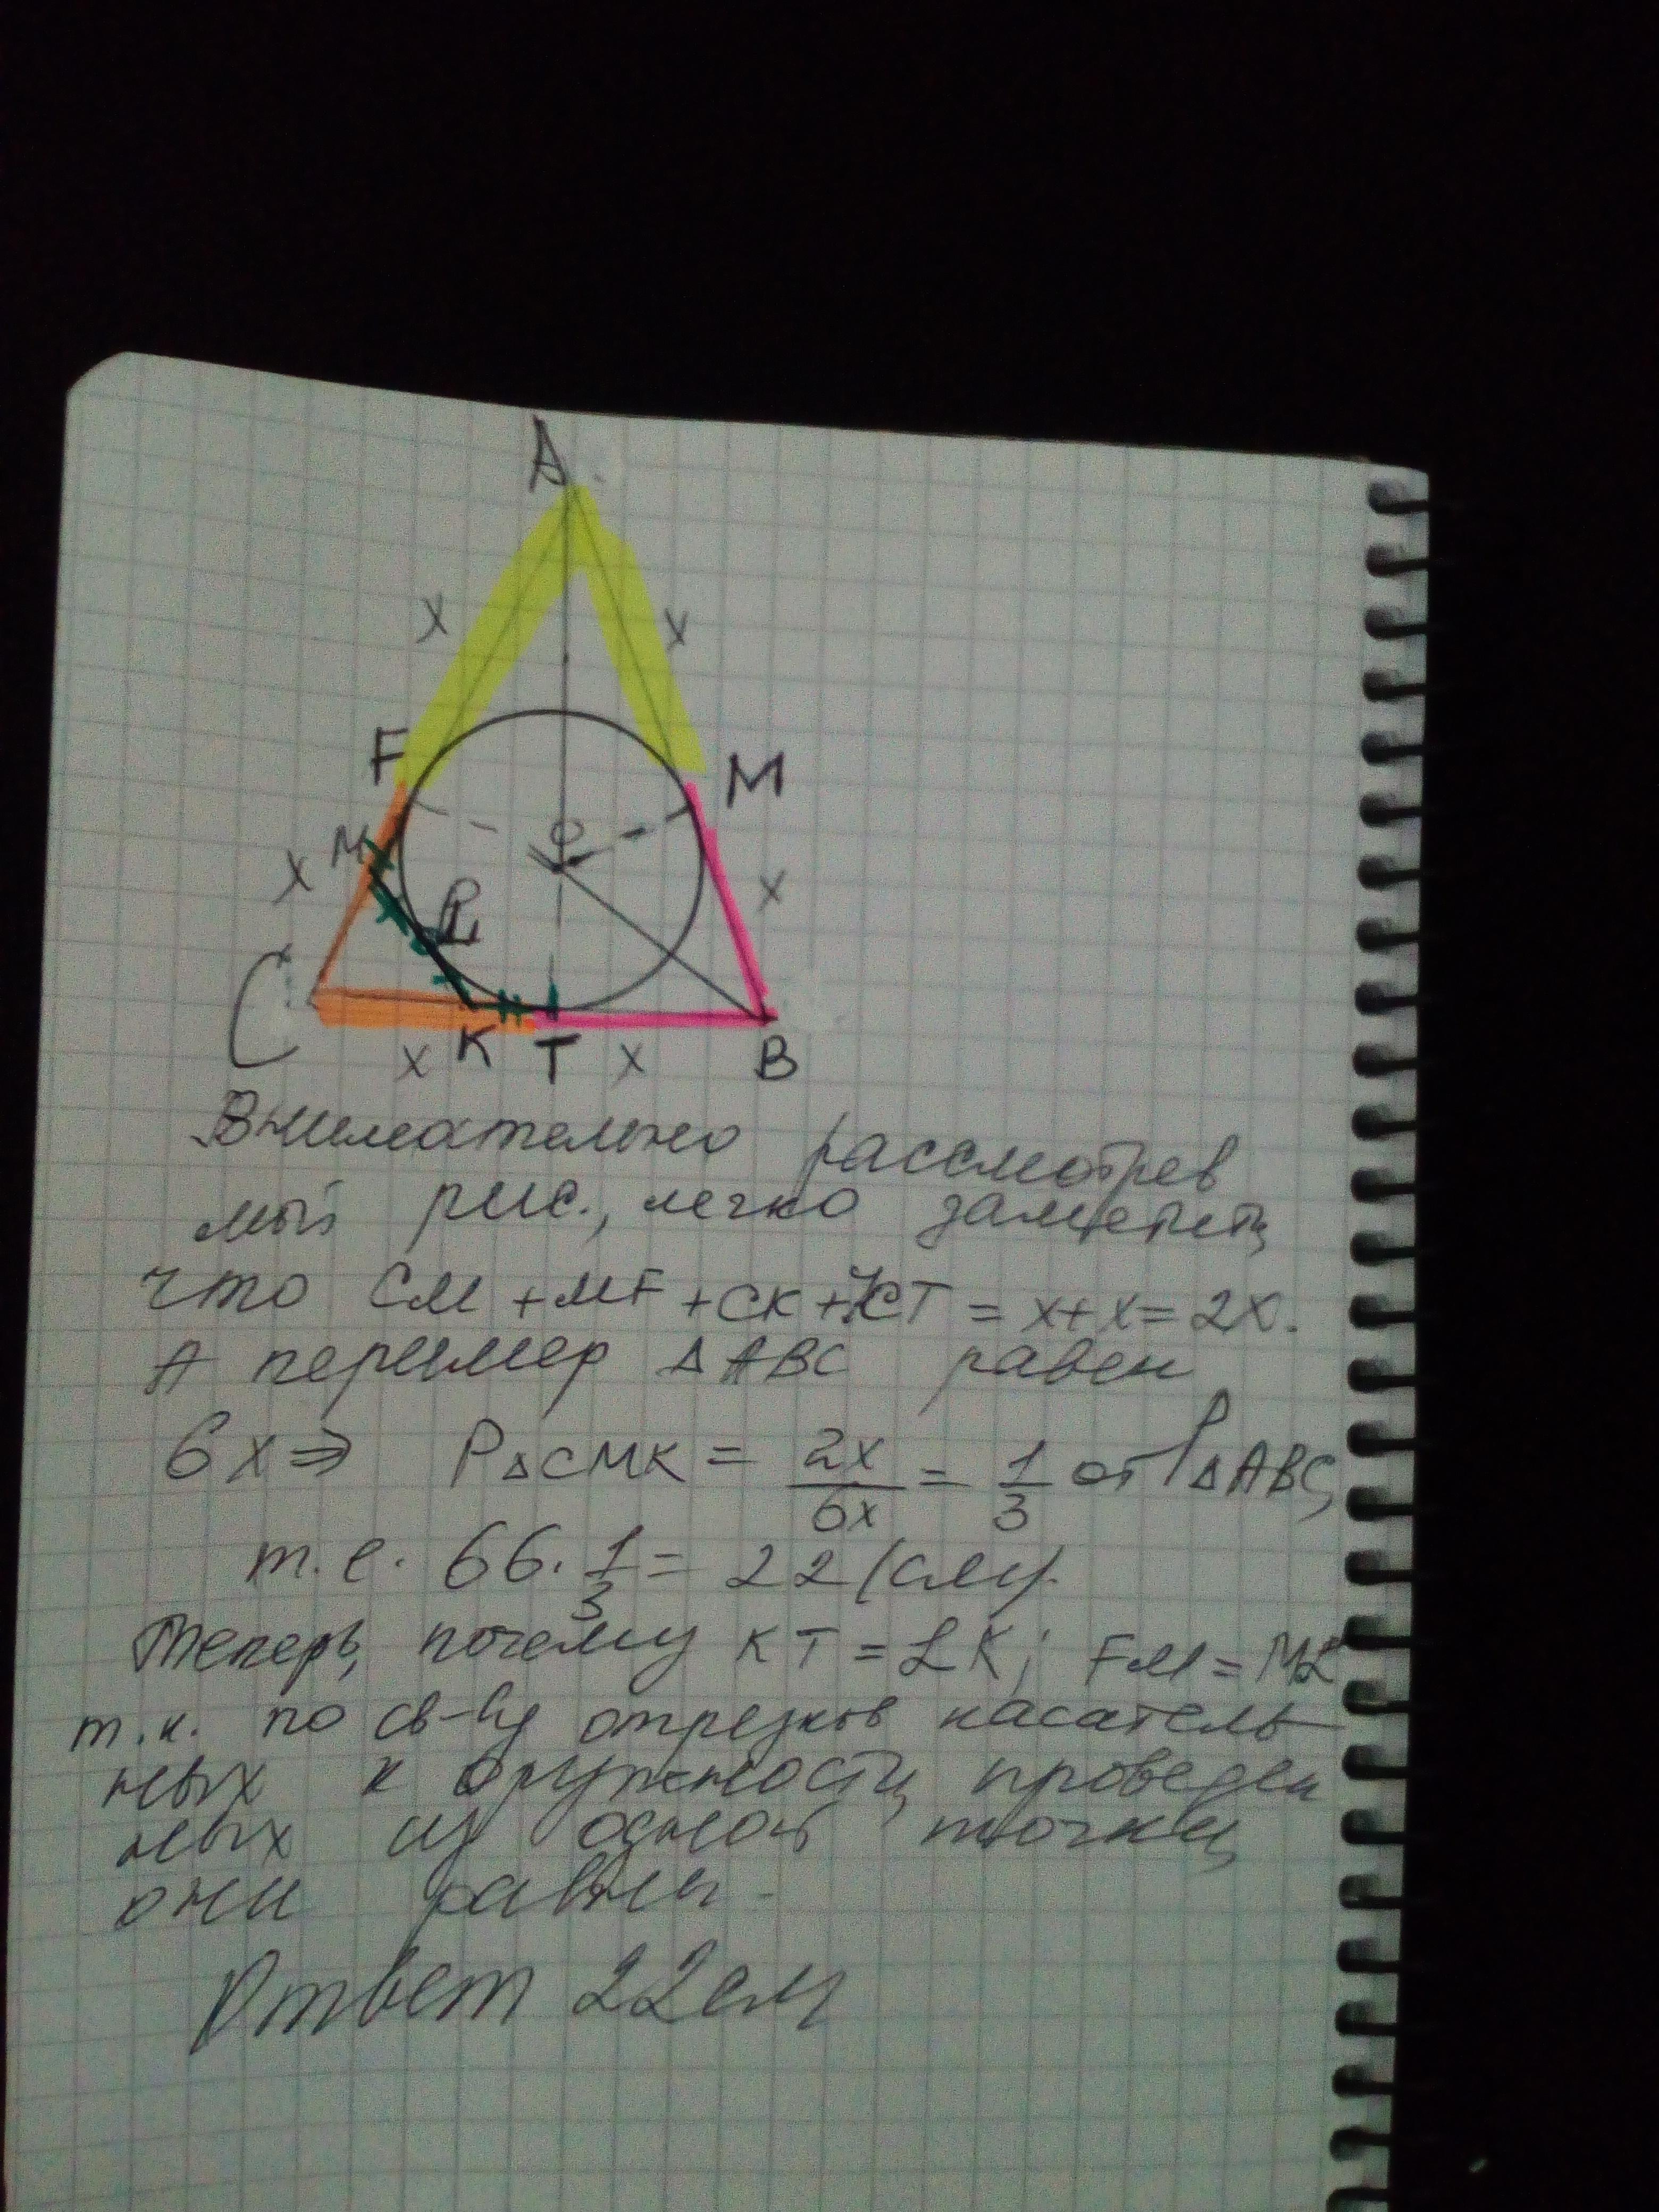 A
x x
F M
M O x
x L
C
x K T x B
Внимательно рассмотрев
мой рис., легко заметить
что CM + MF + CK + KT = x + x = 2x.
A пеример Δ ABC равен
6x ⇒ PΔCMK = 2x/6x = 1/3 от PΔABC,
т.е. 66 · 1/3 = 22 (см).
Теперь, почему KT = LK; FM = ML
т.к. по св-ву отрезков касатель
ных к окружности, проведен
ных из одной точки,
они равны.
Ответ 22 см